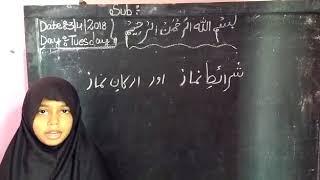 Sub:
Date:3/4/2018
Day:Tuesday
بسم الله الرحمن الرحيم
شرائطِ نماز اور ارکانِ نماز